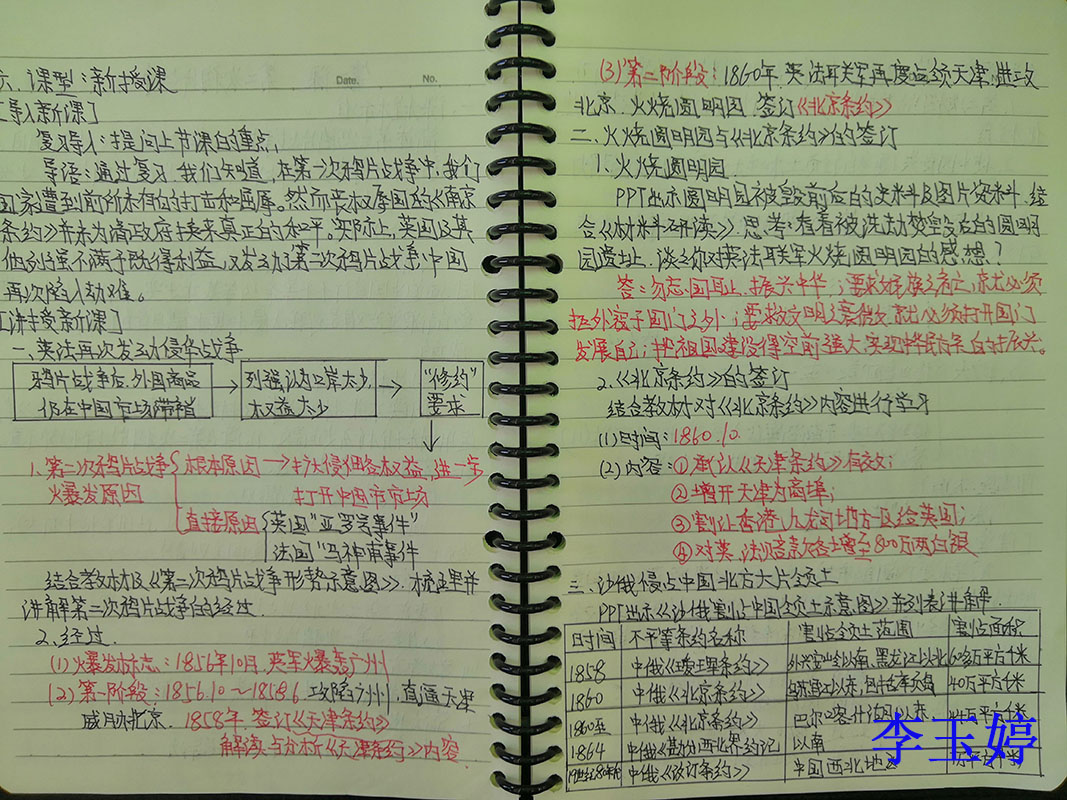 六、课型:新授课
Date.
No.
[导入新课]
复习导入:提问上节课的重点,
导语:通过复习,我们知道,在第一次鸦片战争中,我们
国家遭到前所未有的打击和屈辱。然而丧权辱国的《南京
条约》并未为清政府换来真正的和平。实际上,英国及其
他列强不满于既得利益,又发动了第二次鸦片战争,中国
再次陷入劫难。
[讲授新课]
一、英法再次发动侵华战争
鸦片战争后,外国商品
仍在中国市场滞销
列强认为口岸太少,
权益太少
“修约”
要求
1.第二次鸦片战争
火爆发原因
根本原因→扩大侵略权益,进一步
打开中国市场
直接原因
英国“亚罗号事件”
法国“马神甫事件
结合教材及《第二次鸦片战争形势示意图》,梳理并
讲解第二次鸦片战争的经过.
2.经过.
(1)火爆发标志:1856年10月,英军火爆轰广州
(2)第一阶段:1856.10~1858.6.攻陷广州,直逼天津
威胁北京.1858年签订《天津条约》
解读与分析《天津条约》内容
(3)第二阶段:1860年英法联军再度占领天津,进攻
北京.火烧圆明园.签订《北京条约》
二、火烧圆明园与《北京条约》的签订
1.火烧圆明园.
PPT出示圆明园被毁前后的史料及图片资料.结
合《材料研读》.思考:看看被洗劫焚毁后的圆明
园遗址.谈谈你对英法联军火烧圆明园的感想?
答:勿忘国耻.振兴中华;要救民族之危亡,就必须
拒外寇于国门之外;要救文明之衰微,就必须打开国门
发展自己;把祖国建设得空前强大,实现中华民族的振兴。
2.《北京条约》的签订
结合教材对《北京条约》内容进行学习
(1)时间:1860.10.
(2)内容:①承认《天津条约》有效;
②增开天津为商埠;
③割让香港九龙司地方一区给英国;
④对英、法赔款各增至800万两白银
三.沙俄侵占中国北方大片领土
PPT出示《沙俄割占中国领土示意图》并列表讲解.
时间 不平等条约名称 割占领土范围 割占面积
1858 中俄《瑷珲条约》 外兴安岭以南、黑龙江以北 60多万平方千米
1860 中俄《北京条约》 乌苏里江以东,包括库页岛 40万平方千米
1860至 中俄《北京条约》 巴尔喀什湖以东 44万平方千米
1864 中俄《勘分西北界约记 以南
19世纪80年代 中俄《改订条约》 中国西北地区 万平方千米
李玉婷